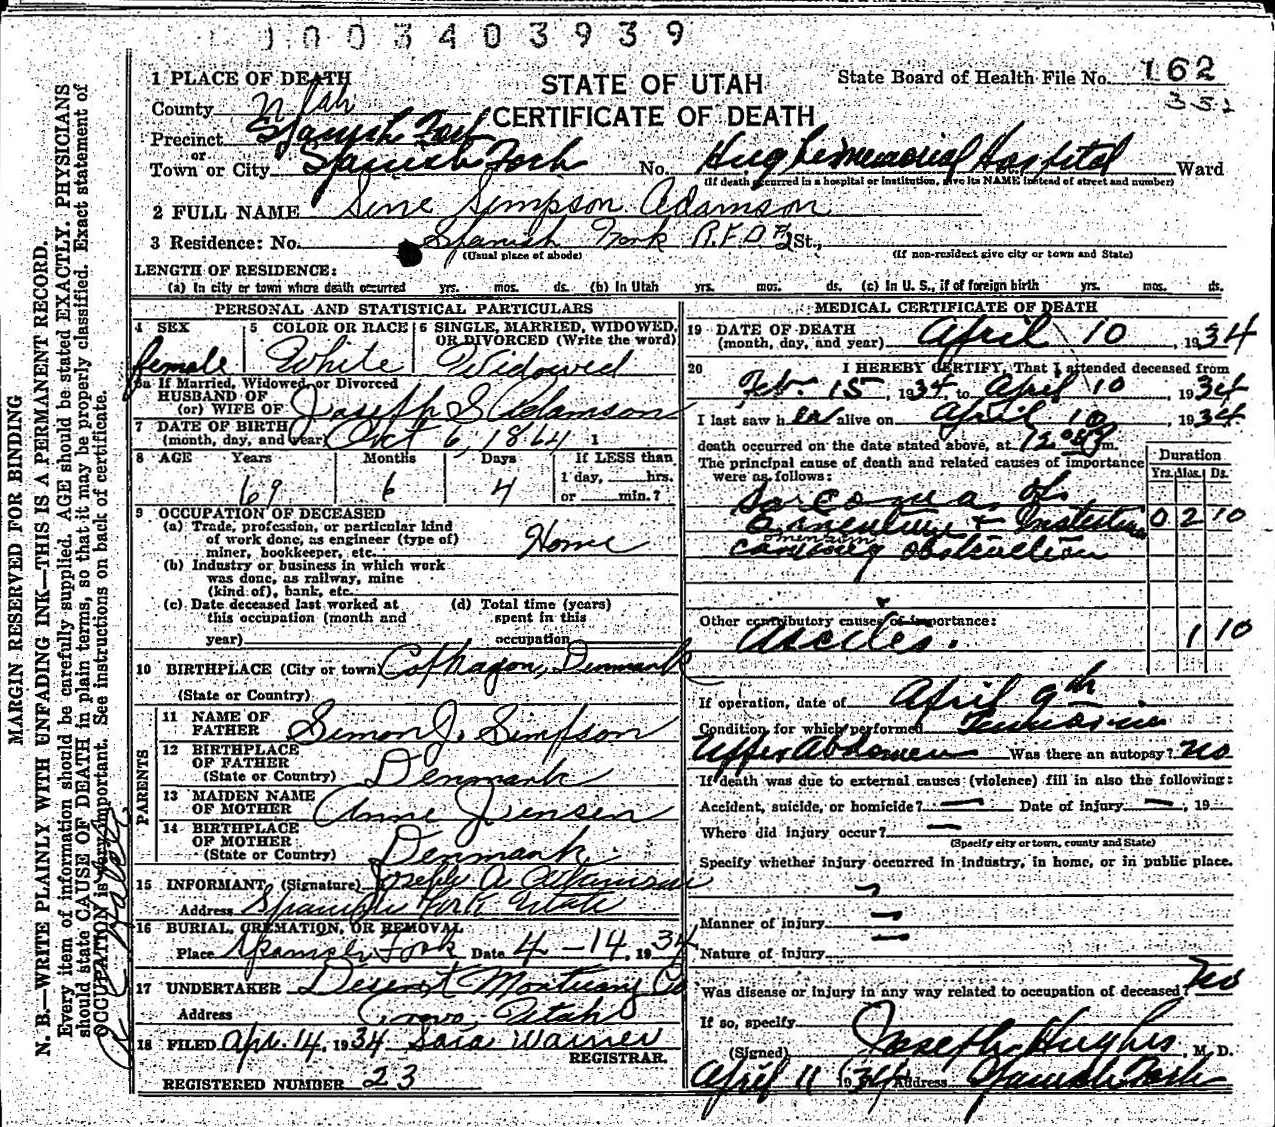 1003403939
STATE OF UTAH
CERTIFICATE OF DEATH
State Board of Health File No. 162
351
1 PLACE OF DEATH
County Utah
Precinct Spanish Fork
or
Town or City Spanish Fork No. Hughes memorial Hospital Ward
(If death occurred in a hospital or institution, give its NAME instead of street and number)
2 FULL NAME Sine Simpson Adamson
3 Residence: No. Spanish Fork R.F.D #2 St.,
(Usual place of abode) (If non-resident give city or town and State)
LENGTH OF RESIDENCE:
(a) In city or town where death occurred yrs. mos. ds. (b) In Utah yrs. mos. ds. (c) In U. S., if of foreign birth yrs. mos. ds.
PERSONAL AND STATISTICAL PARTICULARS
4 SEX 5 COLOR OR RACE 6 SINGLE, MARRIED, WIDOWED, OR DIVORCED (Write the word)
female White Widowed
6a If Married, Widowed, or Divorced
HUSBAND OF
(or) WIFE OF Joseph S Adamson
7 DATE OF BIRTH
(month, day, and year) Oct 6, 1864 1
8 AGE Years Months Days If LESS than
1 day, hrs.
69 6 4 or min.?
9 OCCUPATION OF DECEASED
(a) Trade, profession, or particular kind
of work done, as engineer (type of)
miner, bookkeeper, etc. Home
(b) Industry or business in which work
was done, as railway, mine
(kind of), bank, etc.
(c) Date deceased last worked at
this occupation (month and
year)
(d) Total time (years)
spent in this
occupation
10 BIRTHPLACE (City or town) Cophagon, Denmark
(State or Country)
PARENTS
11 NAME OF
FATHER Simon J. Simpson
12 BIRTHPLACE
OF FATHER
(State or Country) Denmark
13 MAIDEN NAME
OF MOTHER Anne Jensen
14 BIRTHPLACE
OF MOTHER
(State or Country) Denmark
15 INFORMANT (Signature) Joseph A Adamson
Address Spanish Fork Utah
16 BURIAL, CREMATION, OR REMOVAL
Place Spanish Fork Date 4-14, 1934
17 UNDERTAKER Deseret Mortuary Co
Address Provo, Utah
18 FILED Apr. 14, 1934 Sara Warner
REGISTRAR.
REGISTERED NUMBER 23
MEDICAL CERTIFICATE OF DEATH
19 DATE OF DEATH
(month, day, and year) April 10, 1934
20 I HEREBY CERTIFY, That I attended deceased from
Feb. 15, 1934, to April 10, 1934
I last saw her alive on April 10, 1934.
death occurred on the date stated above, at m.
The principal cause of death and related causes of importance
were as follows:
Duration
Yrs. Mos. Ds.
Sarcoma of
+ Intestine 0 2 10
omentum
causing obstruction
Other contributory causes of importance:
Ascites. 1 10
If operation, date of April 9th
Condition for which performed
Upper Abdomen Was there an autopsy? no
If death was due to external causes (violence) fill in also the following:
Accident, suicide, or homicide? — Date of injury —, 19
Where did injury occur? —
(Specify city or town, county and State)
Specify whether injury occurred in industry, in home, or in public place.
Manner of injury —
Nature of injury —
Was disease or injury in any way related to occupation of deceased? No
If so, specify
(Signed) Joseph Hughes, M. D.
April 11 1934 Address Spanish Fork
MARGIN RESERVED FOR BINDING
N. B.—WRITE PLAINLY WITH UNFADING INK—THIS IS A PERMANENT RECORD.
Every item of information should be carefully supplied. AGE should be stated EXACTLY. PHYSICIANS
should state CAUSE OF DEATH in plain terms, so that it may be properly classified. Exact statement of
OCCUPATION is very important. See instructions on back of certificate.